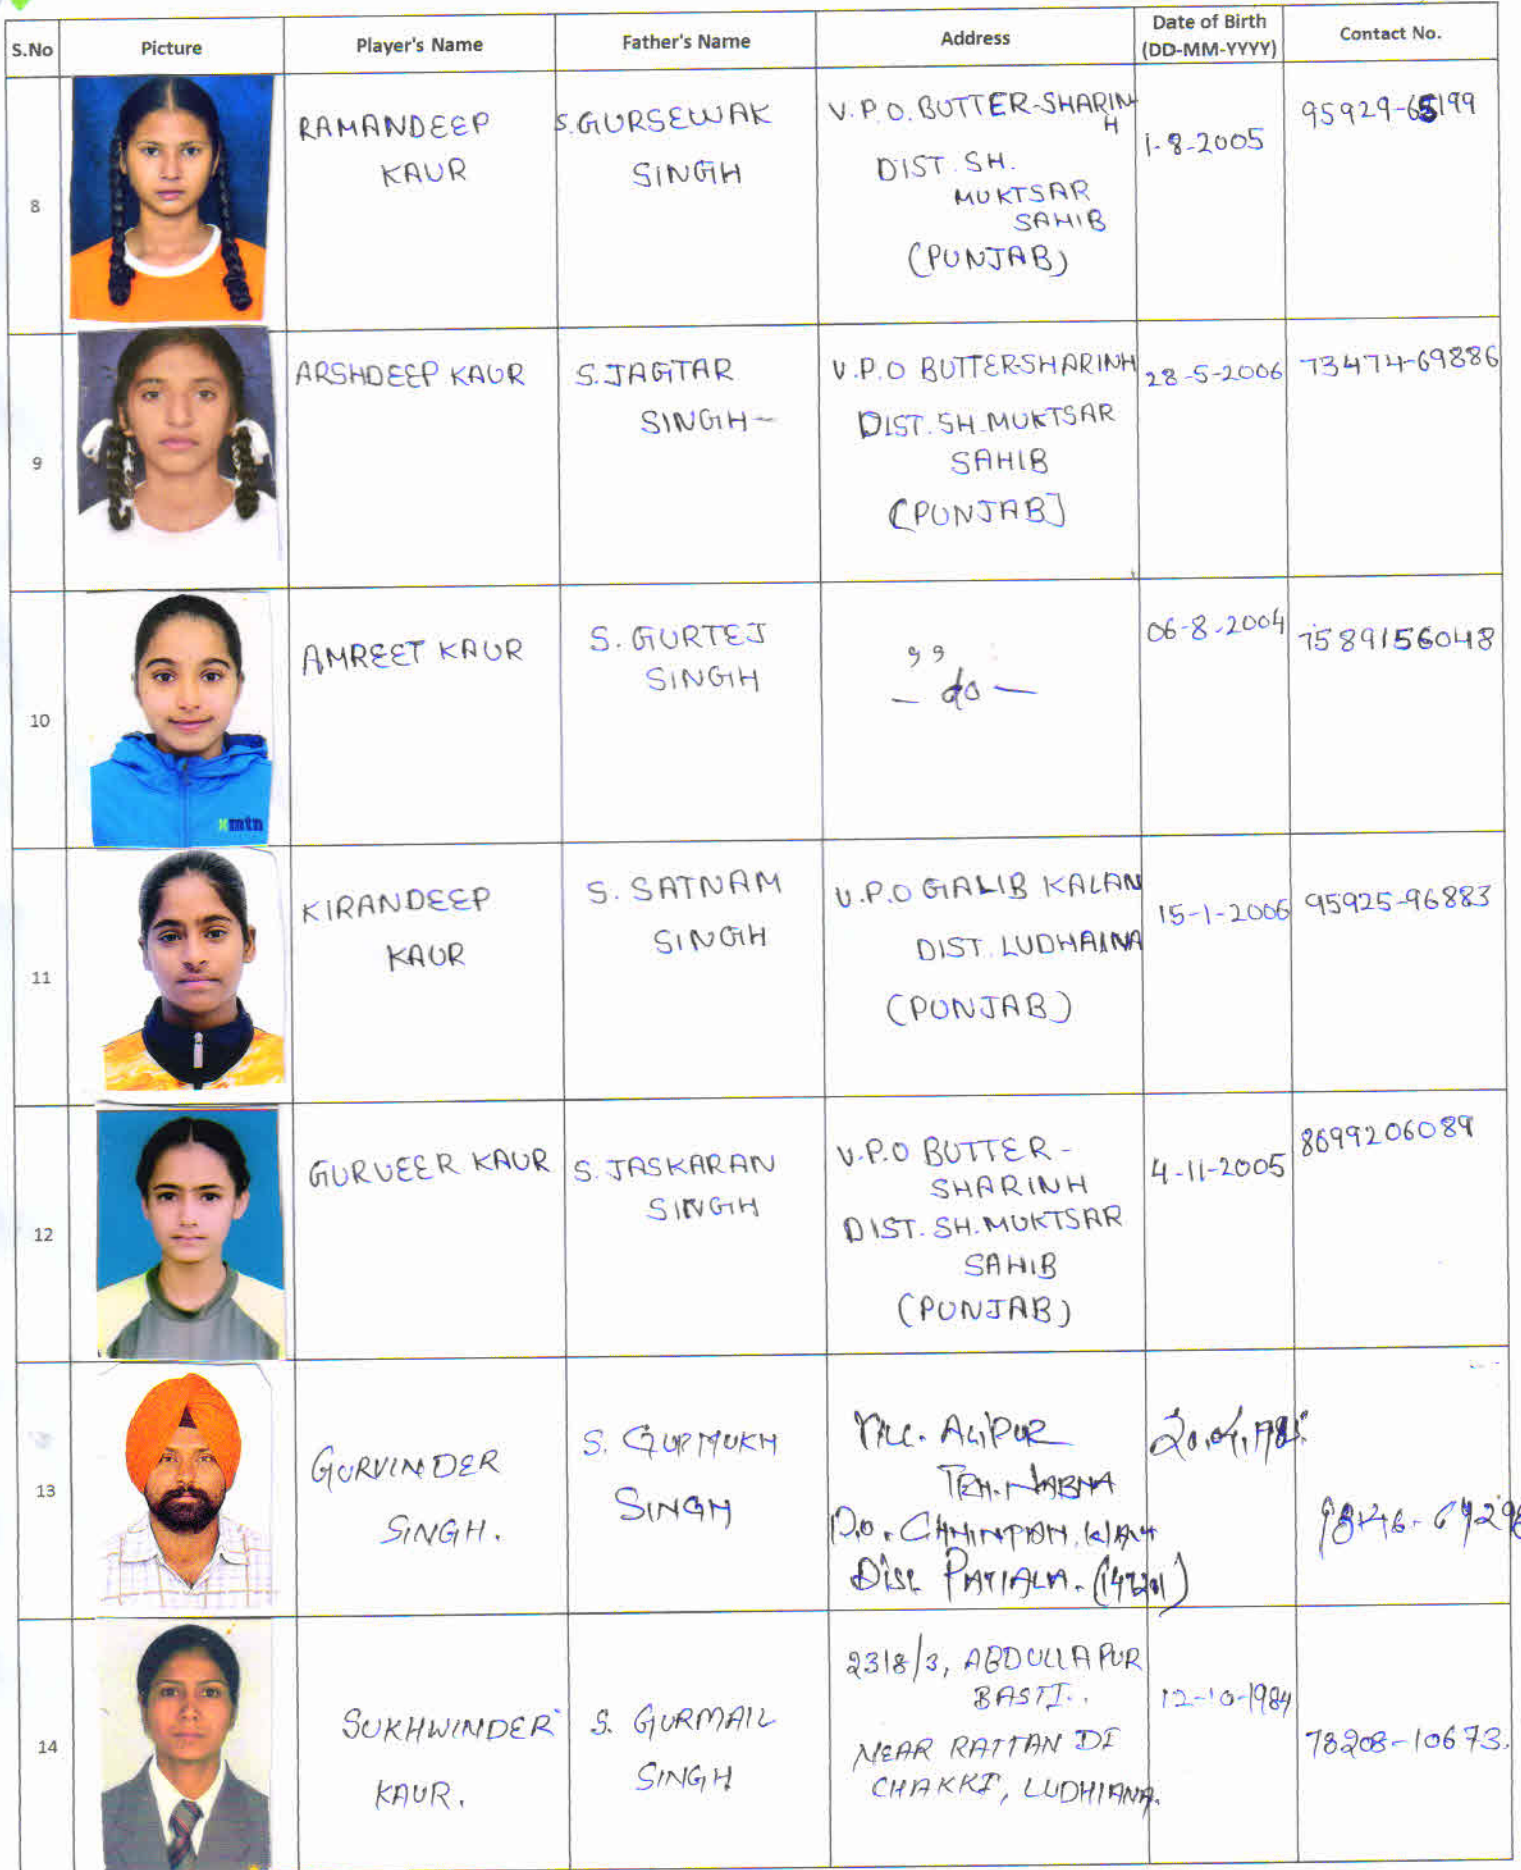 S.No Picture Player's Name Father's Name Address Date of Birth (DD-MM-YYYY) Contact No.
8
RAMANDEEP
KAUR
S.GURSEWAK
SINGH
V.P.O. BUTTER-SHARINH
DIST. SH.
MUKTSAR
SAHIB
(PUNJAB)
1-8-2005
95929-65199
9
ARSHDEEP KAUR
S.JAGTAR
SINGH-
V.P.O BUTTER-SHARINH
DIST. SH.MUKTSAR
SAHIB
(PUNJAB]
28-5-2006
73474-69886
10
mtn
AMREET KAUR
S. GURTEJ
SINGH
,,
- do -
06-8-2004
7589156048
11
KIRANDEEP
KAUR
S. SATNAM
SINGH
V.P.O GALIB KALAN
DIST. LUDHAINA
(PUNJAB)
15-1-2006
95925-96883
12
GURVEER KAUR
S. JASKARAN
SINGH
V.P.O BUTTER-
SHARINH
DIST. SH.MUKTSAR
SAHIB
(PUNJAB)
4-11-2005
8699206089
13
GURVINDER
SINGH.
S. GURMUKH
SINGH
Vill. ALIPUR
TEH. NABHA
P.O.
Dist. PATIALA.
14
SUKHWINDER
KAUR.
S. GURMAIL
SINGH
2318/3, ABDULLAPUR
BASTI..
NEAR RATTAN DI
CHAKKI, LUDHIANA.
12-10-1984
78208-10673.